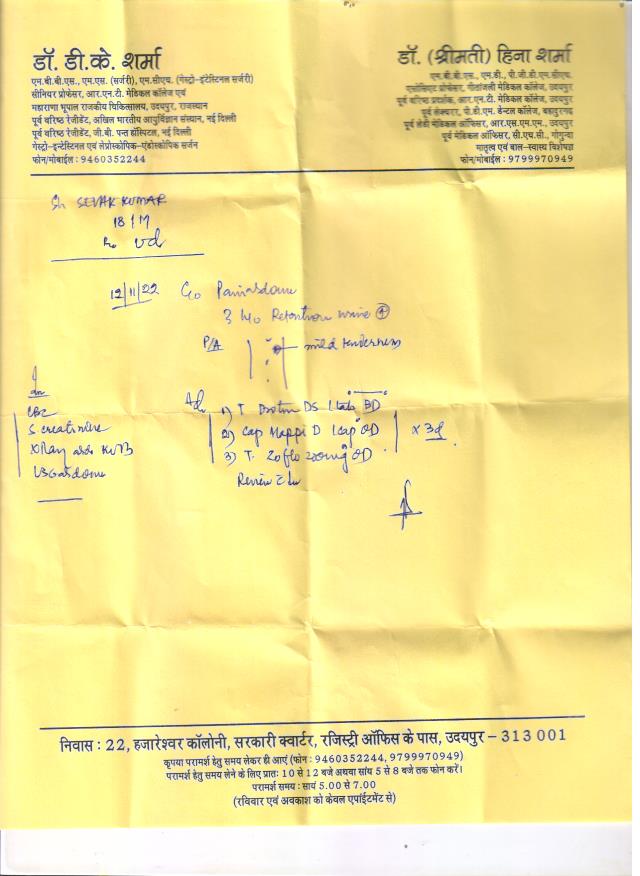 डॉ. डी.के. शर्मा
एम.बी.बी.एस., एम.एस. (सर्जरी), एम.सीएच. (गेस्ट्रो-इंटेस्टिनल सर्जरी)
सीनियर प्रोफेसर, आर.एन.टी. मेडिकल कॉलेज एवं
महाराणा भूपाल राजकीय चिकित्सालय, उदयपुर, राजस्थान
पूर्व वरिष्ठ रेजीडेंट, अखिल भारतीय आयुर्विज्ञान संस्थान, नई दिल्ली
पूर्व वरिष्ठ रेजीडेंट, जी.बी. पन्त हॉस्पिटल, नई दिल्ली
गेस्ट्रो-इन्टेस्टिनल एवं लेप्रोस्कोपिक-एंडोस्कोपिक सर्जन
फोन/मोबाईल : 9460352244
डॉ. (श्रीमती) हिना शर्मा
एम.बी.बी.एस., एम.डी., पी.जी.डी.एम.सीएच.
एसोसिएट प्रोफेसर, गीतांजली मेडिकल कॉलेज, उदयपुर
पूर्व वरिष्ठ प्रदर्शक, आर.एन.टी. मेडिकल कॉलेज, उदयपुर
पूर्व लेक्चरर, पी.डी.एम. डेन्टल कॉलेज, बहादुरगढ़
पूर्व लेडी मेडिकल ऑफिसर, आर.एस.एम.एम., उदयपुर
पूर्व मेडिकल ऑफिसर, सी.एच.सी., गोगुन्दा
मातृत्व एवं बाल-स्वास्थ्य विशेषज्ञ
फोन/मोबाईल : 9799970949
Sh SEVAK KUMAR
18/M
12/11/22 C/o Pain abdomen
H/o Retention urine
P/A mild tenderness
CBC
S creatinine
X Ray abd KUB
US abdomen
Adv 1) T DS 1 tab BD
2) Cap Mappi D 1 cap OD x 3d
3) T. Zoflo 200mg OD
Review
निवास : 22, हजारेश्वर कॉलोनी, सरकारी क्वार्टर, रजिस्ट्री ऑफिस के पास, उदयपुर – 313 001
कृपया परामर्श हेतु समय लेकर ही आएं (फोन : 9460352244, 9799970949)
परामर्श हेतु समय लेने के लिए प्रातः 10 से 12 बजे अथवा सांय 5 से 8 बजे तक फोन करें।
परामर्श समय : सायं 5.00 से 7.00
(रविवार एवं अवकाश को केवल एपॉईंटमेंट से)